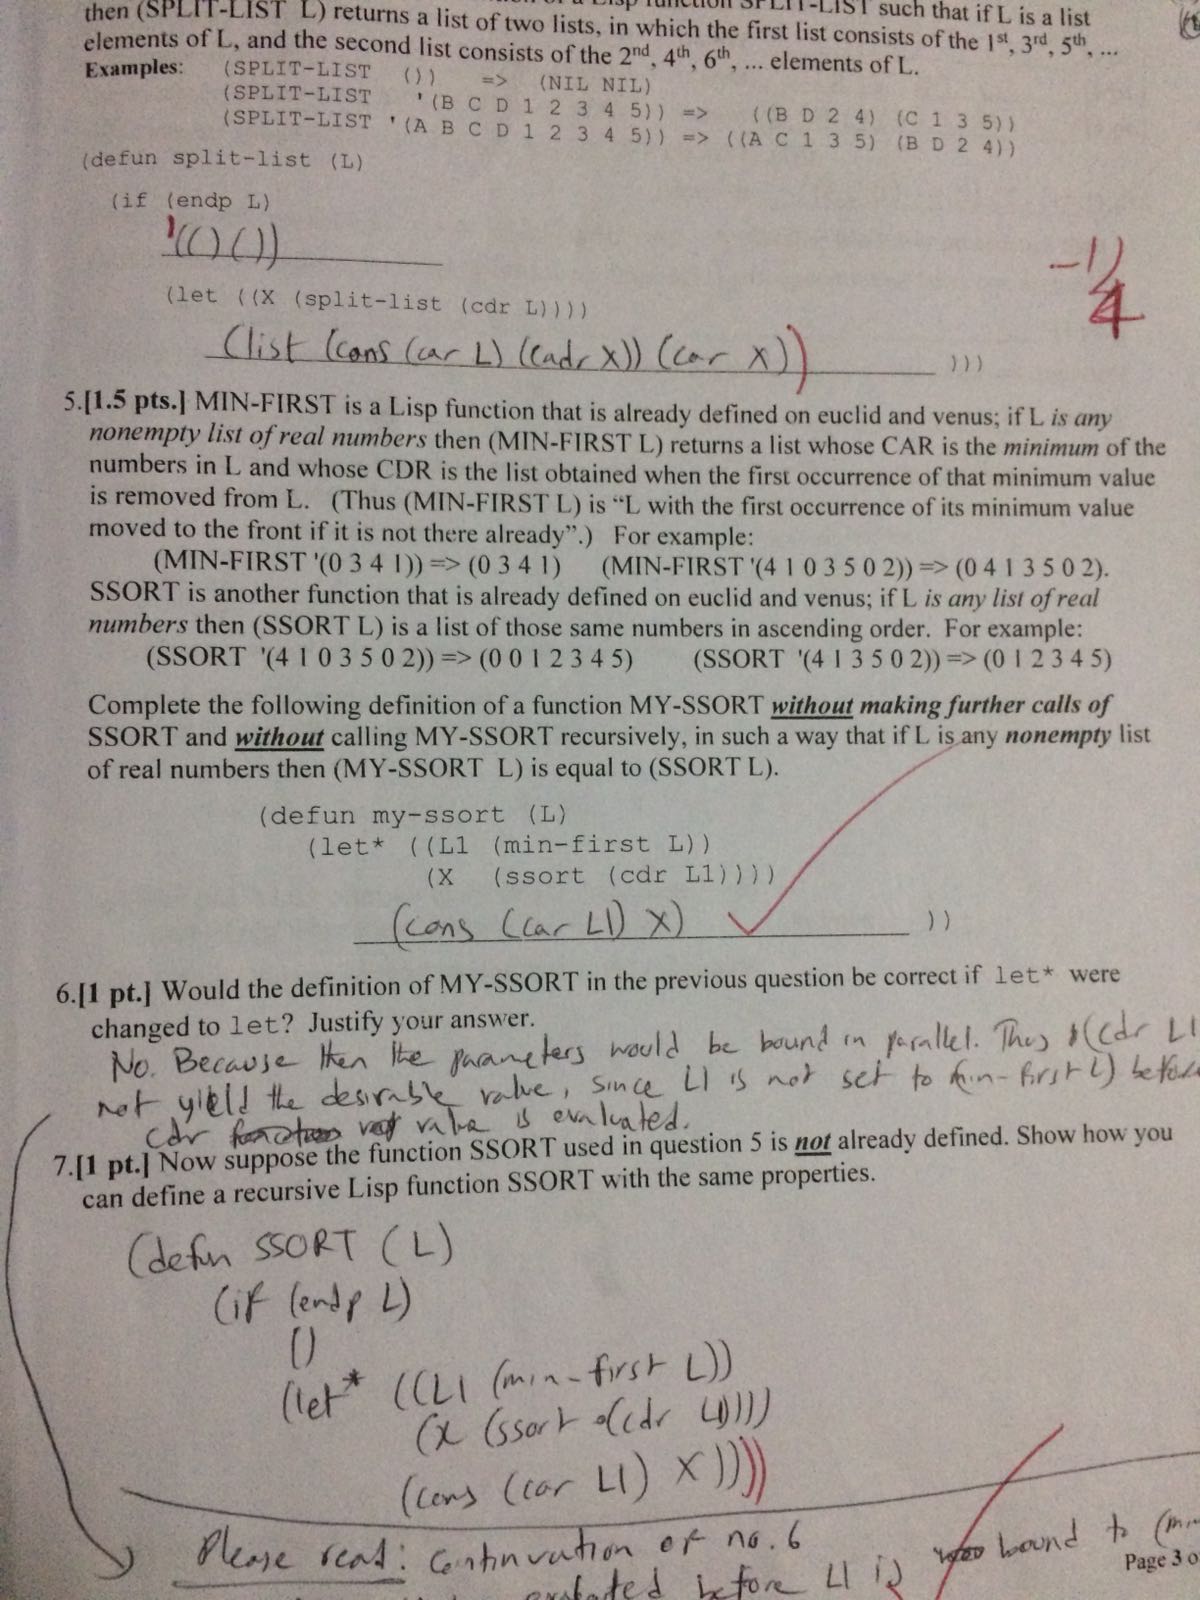 then (SPLIT-LIST L) returns a list of two lists, in which the first list consists of the 1st, 3rd, 5th, ...
elements of L, and the second list consists of the 2nd, 4th, 6th, ... elements of L.
Examples: (SPLIT-LIST ()) => (NIL NIL)
(SPLIT-LIST '(B C D 1 2 3 4 5)) => ((B D 2 4) (C 1 3 5))
(SPLIT-LIST '(A B C D 1 2 3 4 5)) => ((A C 1 3 5) (B D 2 4))
(defun split-list (L)
(if (endp L)
'(()())
-1/4
(let ((X (split-list (cdr L))))
(list (cons (car L) (cadr X)) (car X)) )))
5.[1.5 pts.] MIN-FIRST is a Lisp function that is already defined on euclid and venus; if L is any
nonempty list of real numbers then (MIN-FIRST L) returns a list whose CAR is the minimum of the
numbers in L and whose CDR is the list obtained when the first occurrence of that minimum value
is removed from L. (Thus (MIN-FIRST L) is “L with the first occurrence of its minimum value
moved to the front if it is not there already”.) For example:
(MIN-FIRST '(0 3 4 1)) => (0 3 4 1) (MIN-FIRST '(4 1 0 3 5 0 2)) => (0 4 1 3 5 0 2).
SSORT is another function that is already defined on euclid and venus; if L is any list of real
numbers then (SSORT L) is a list of those same numbers in ascending order. For example:
(SSORT '(4 1 0 3 5 0 2)) => (0 0 1 2 3 4 5) (SSORT '(4 1 3 5 0 2)) => (0 1 2 3 4 5)
Complete the following definition of a function MY-SSORT without making further calls of
SSORT and without calling MY-SSORT recursively, in such a way that if L is any nonempty list
of real numbers then (MY-SSORT L) is equal to (SSORT L).
(defun my-ssort (L)
(let* ((L1 (min-first L))
(X (ssort (cdr L1))))
(cons (car L1) X) ))
6.[1 pt.] Would the definition of MY-SSORT in the previous question be correct if let* were
changed to let? Justify your answer.
No. Because then the parameters would be bound in parallel. Thus (cdr L1
not yield the desirable value, since L1 is not set to min-first L) before
cdr value is evaluated.
7.[1 pt.] Now suppose the function SSORT used in question 5 is not already defined. Show how you
can define a recursive Lisp function SSORT with the same properties.
(defun SSORT (L)
(if (endp L)
()
(let* ((L1 (min-first L))
(X (ssort (cdr L1))))
(cons (car L1) X))))
Please read: Continuation of no. 6
evaluated before L1 is bound to (min
Page 3 o